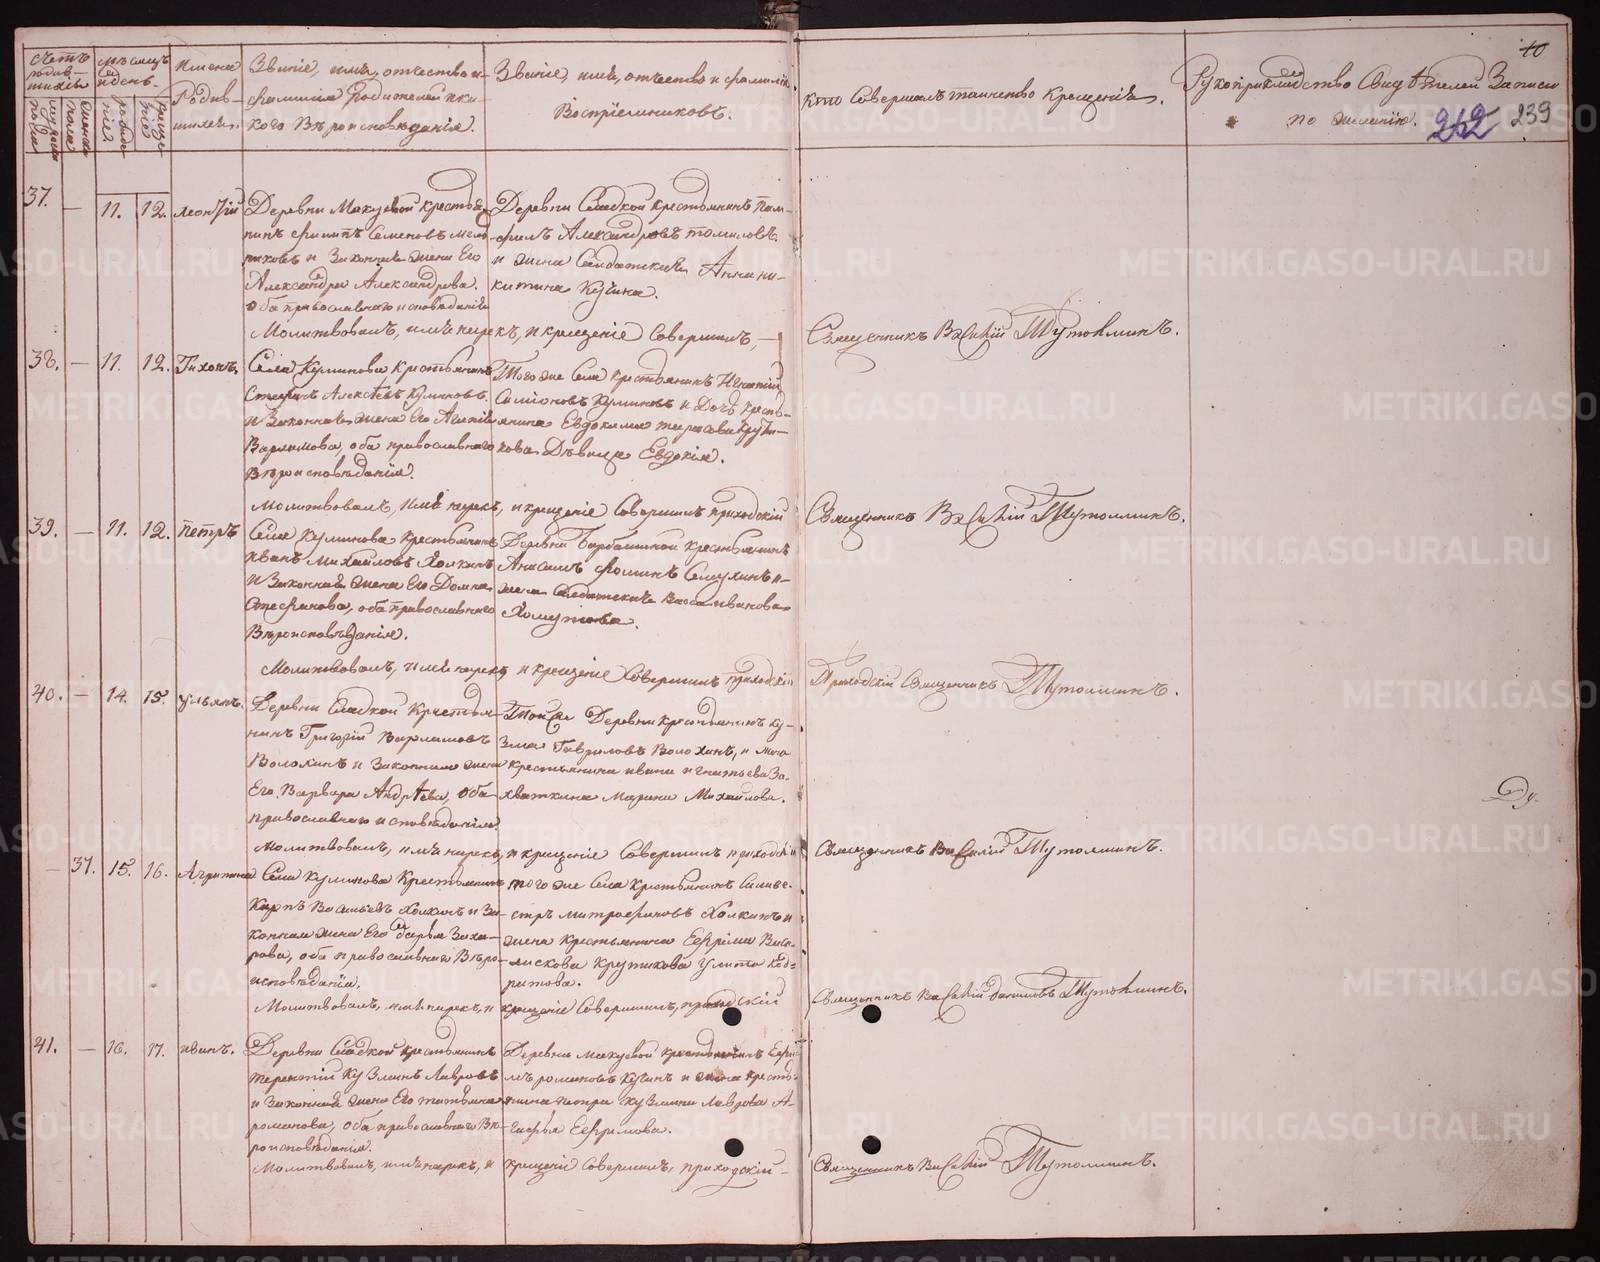 счетъ родив-шихся
мѣсяцъ и день.
имена Родив-шихся.
Званіе, имя, отчество и фамилія Родителей и ка-кого Вѣроисповѣданія.
Званіе, имя, отчество и фамилія Воспріемниковъ.
кто Совершалъ таинство Крещенія.
Рукоприкладство Свидѣтелей Записи по желанію.
40
242
239
37. — 11. 12. Леонтій
Деревни Макуевой крестья-
нинъ Филипъ Семеновъ
и Законная жена Его
Александра Александрова.
оба православнаго исповѣданія
Деревни Сладкой крестьянинъ Пам-
филъ Александровъ Томиловъ.
и жена Солдатская Анна Ни-
китина Кугина.
Молитвовалъ, имя нарекъ, и крещеніе Совершилъ, —
Священникъ Василій Тутолминъ.
38. — 11. 12. Тихонъ.
Села Куликова Крестьянинъ
Стефанъ Алексѣевъ Куликовъ.
и Законная жена Его Агапія
Варламова, оба православнаго
Вѣроисповѣданія.
Того же Села Крестьянинъ Игнатій
Симіоновъ Куликовъ и Дочь Кресть-
янина Евдокима
Дѣвица Евдокія.
Молитвовалъ, имя нарекъ, и крещеніе Совершилъ приходскій
Священникъ Василій Тутолминъ.
39. — 11. 12. Петръ
Села Куликова Крестьянинъ
Иванъ Михайловъ Холкинъ
и Законная жена Его Домна
Стефанова, оба православнаго
Вѣроисповѣданія.
Деревни Барбашиной Крестьянинъ
Фоминъ и
жена Солдатская Васса Иванова
Хомутова.
Молитвовалъ, имя нарекъ и крещеніе Совершилъ приходскій
Приходскій Священникъ Тутолминъ.
40. — 14. 15. Ульянъ.
Деревни Сладкой Крестья-
нинъ Григорій Варламовъ
Волохинъ и Законная жена
Его Варвара Андрѣева, оба
православнаго исповѣданія
Той же Деревни крестьянинъ Ку-
зма Гавриловъ Волохинъ, и жена
Крестьянина Ивана Игнатьева За-
хваткина Марина Михайлова.
Молитвовалъ, имя нарекъ, и крещеніе Совершилъ приходскій
Священникъ Василій Тутолминъ.
— 37. 15. 16. Агрипина
Села Куликова Крестьянинъ
Карпъ Васильевъ Холкинъ и За-
конная жена Его Дарья Заха-
рова, оба православнаго Вѣро-
исповѣданія.
того же Села Крестьянинъ Силиве-
стръ Митрофановъ Холкинъ и
жена крестьянина Ефрема
Крутикова Улита Код-
ратова.
Молитвовалъ, имя нарекъ, и крещеніе Совершилъ, приходскій
Священникъ Василій Даниловъ Тутолминъ.
41. — 16. 17. Иванъ.
Деревни Сладкой крестьянинъ
Терентій Кузминъ Лавровъ
и Законная жена Его Татьяна
Романова, оба православнаго Вѣ-
роисповѣданія.
Деревни Макуевой крестьянинъ Ефи-
мъ Романовъ Кугинъ и жена Кресть-
янина Петра Кузмина Лаврова А-
гафья Ефимова.
Молитвовалъ, имя нарекъ, и крещеніе Совершилъ, приходскій —
Священникъ Василій Тутолминъ.
METRIKI.GASO-URAL.RU